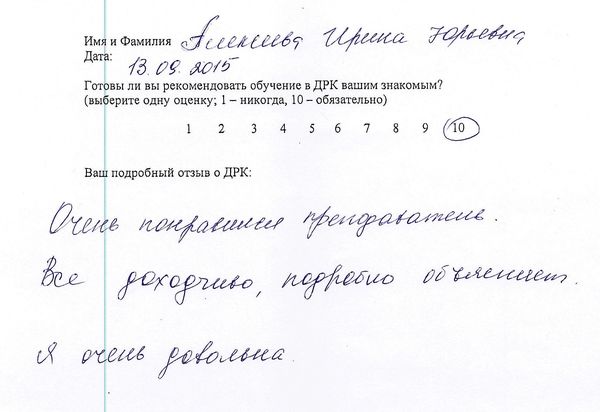 Имя и Фамилия Алексеева Ирина Юрьевна
Дата: 13.09.2015
Готовы ли вы рекомендовать обучение в ДРК вашим знакомым?
(выберите одну оценку; 1 – никогда, 10 – обязательно)
1 2 3 4 5 6 7 8 9 10
Ваш подробный отзыв о ДРК:
Очень понравился преподаватель.
Все доходчиво, подробно объясняет.
Я очень довольна